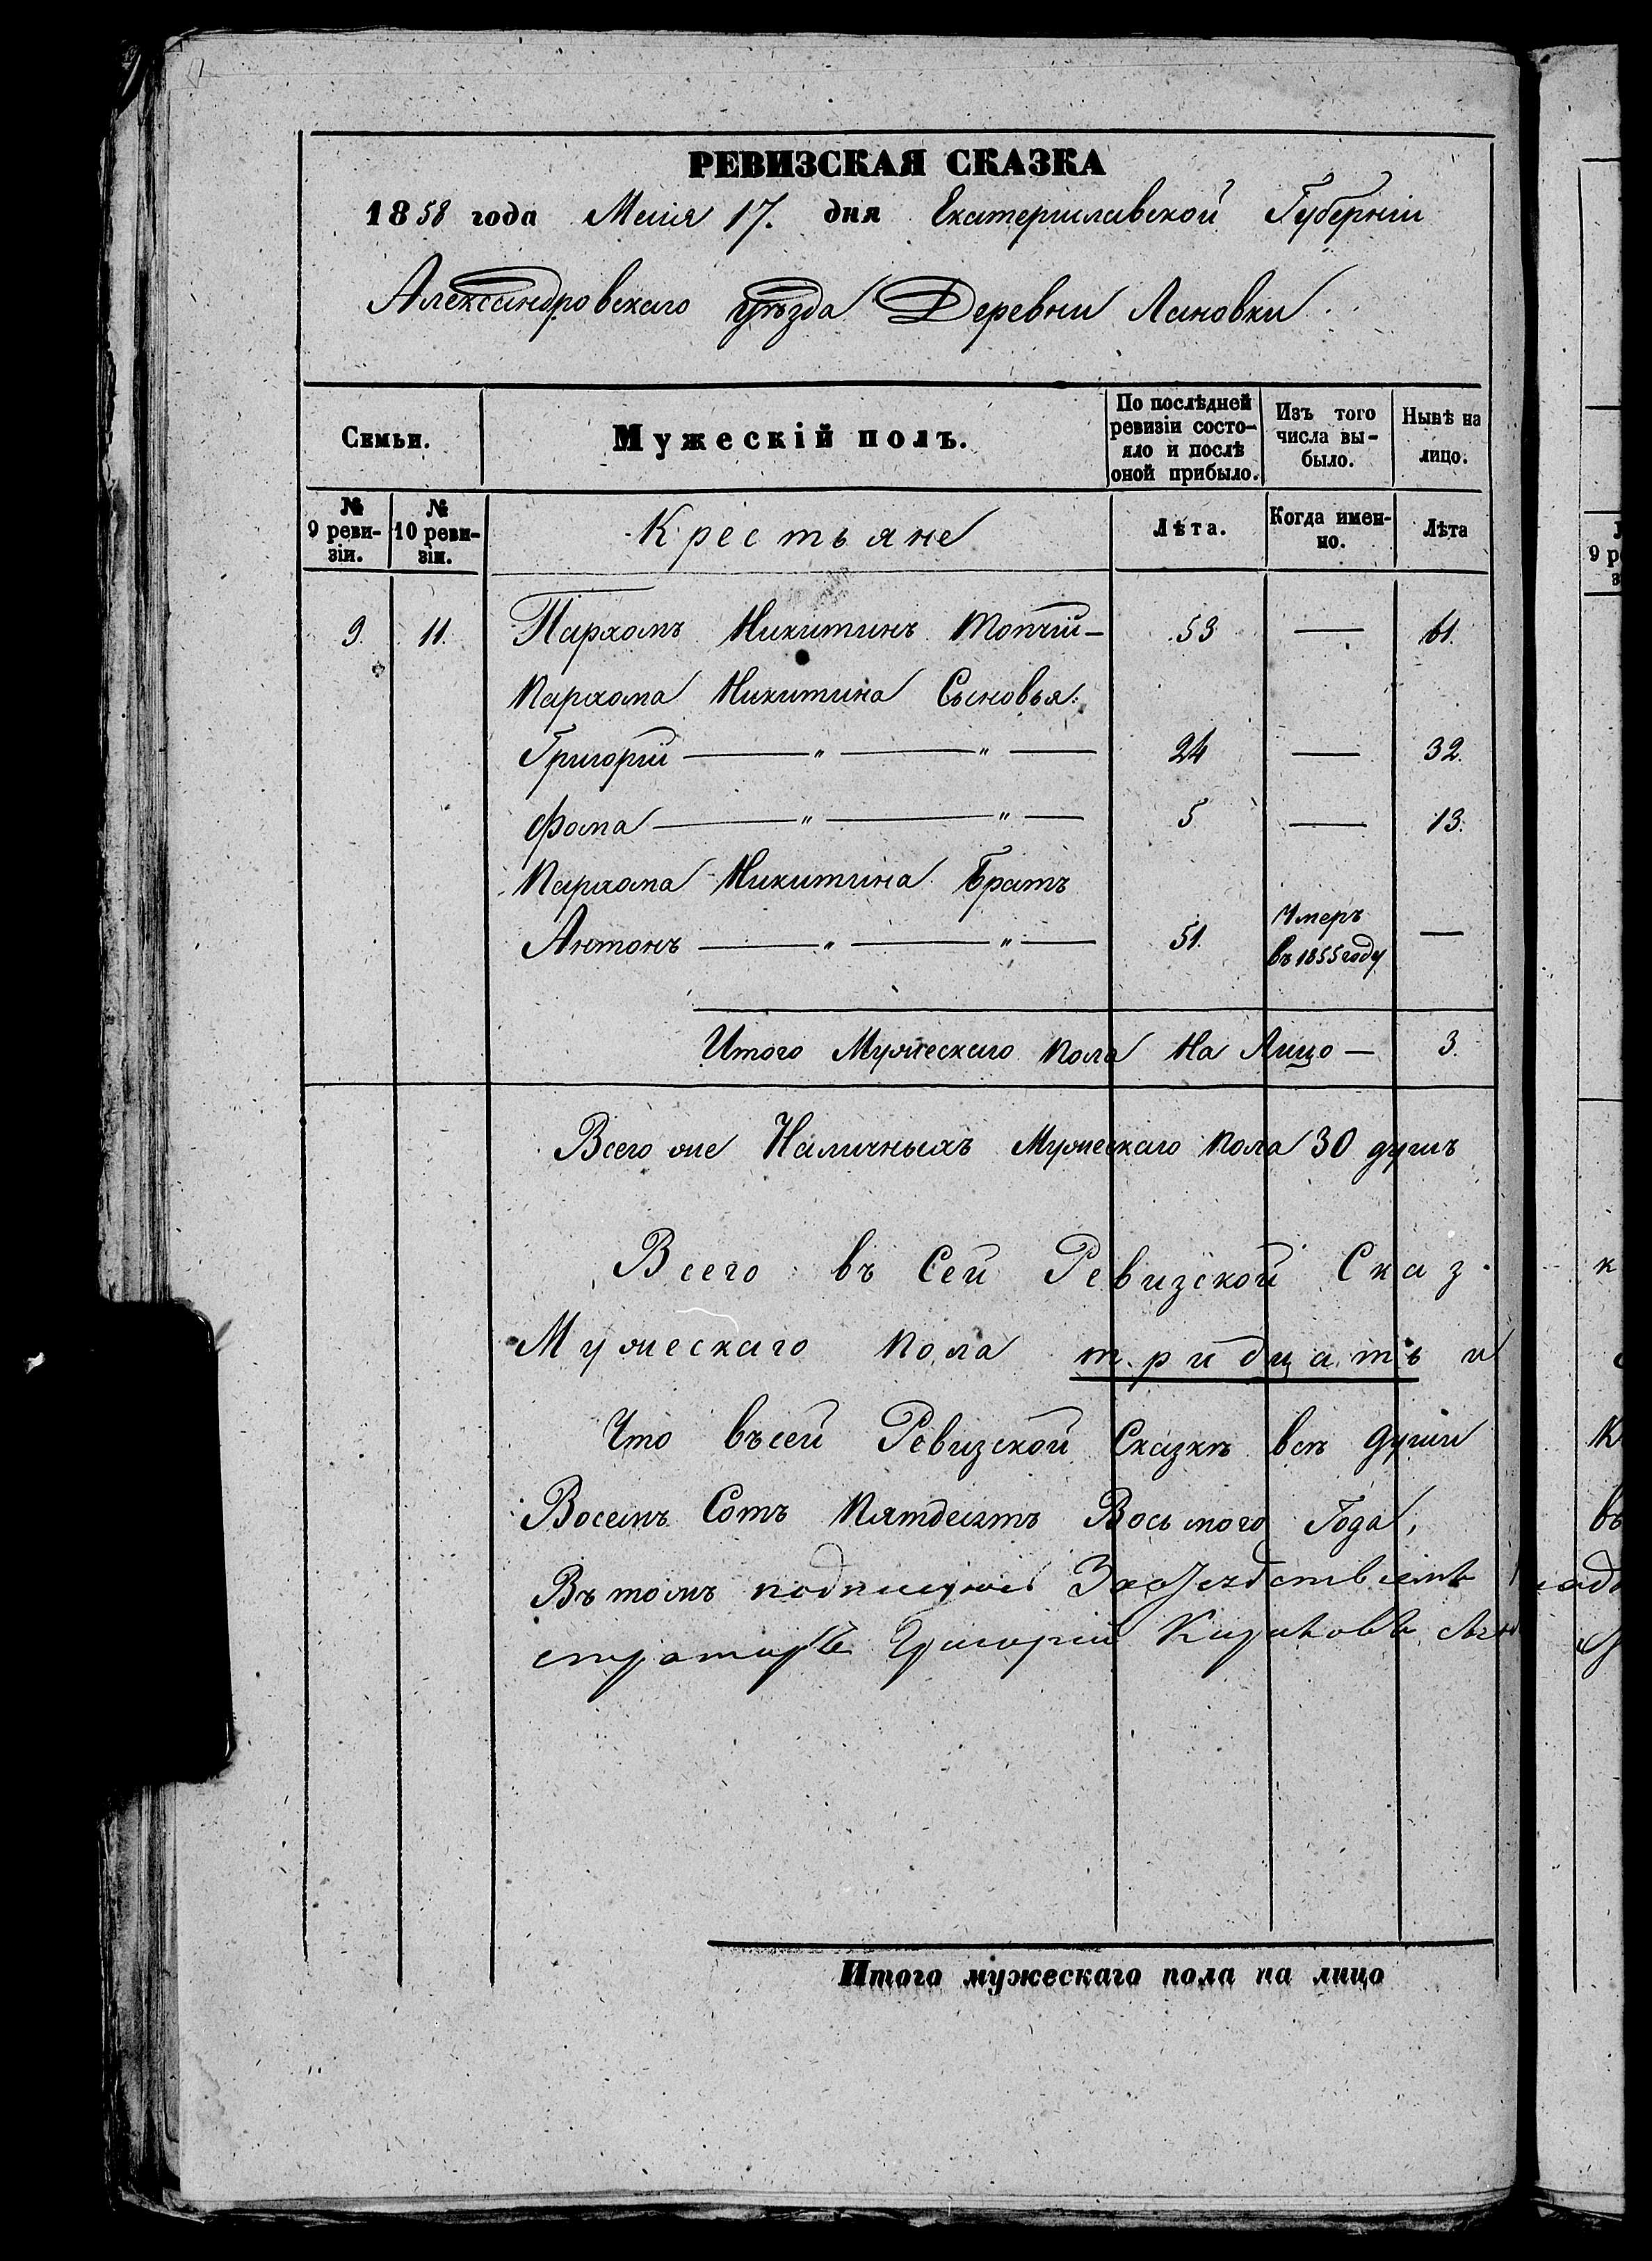 РЕВИЗСКАЯ СКАЗКА
1858 года Маія 17. дня Екатериславской Губерніи
Александровскаго уѣзда Деревни Лановки
Семьи. Мужескій полъ. По послѣдней ревизіи состо- яло и послѣ оной прибыло. Изъ того числа вы- было. Нынѣ на лицо.
№ 9 реви- зіи. № 10 реви- зіи. Крестьяне Лѣта. Когда имен- но. Лѣта
9. 11. Пархомъ Никитинъ Топчій — 53 — 61.
Пархома Никитина Сыновья:
Григорій — „ — „ — 24 — 32.
Фома — „ — „ — 5 — 13.
Пархома Никитина Братъ
Антонъ — „ — „ — 51. Умеръ въ 1855 году —
Итого Мужескаго пола На Лицо — 3.
Всего же Наличныхъ Мужескаго пола 30 душъ
Всего въ Сей Ревизской Сказ
Мужескаго пола тридцать и
Что въсей Ревизской Сказкѣ всѣ души
Восемь Сотъ Пятдесятъ Восьмого Года,
Въ томъ подписуюсь
Григорій
Итого мужескаго пола на лицо
9 р
к
К
въ